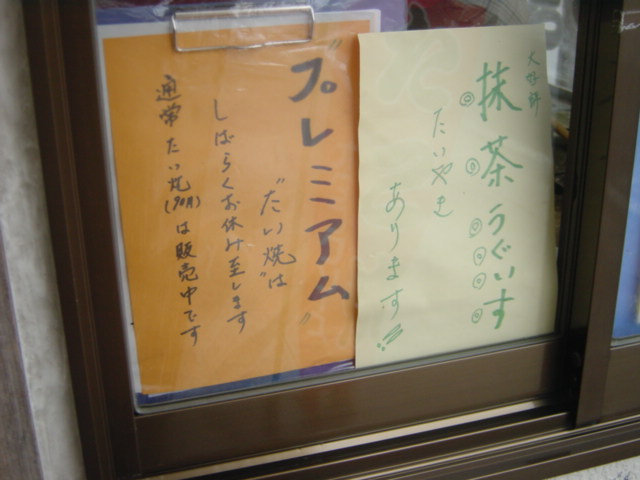 大好評
抹茶うぐいす
たいやき
あります!!
"プレミアム"
"たい焼"は
しばらくお休み至します
通常たい焼(90円)は販売中です